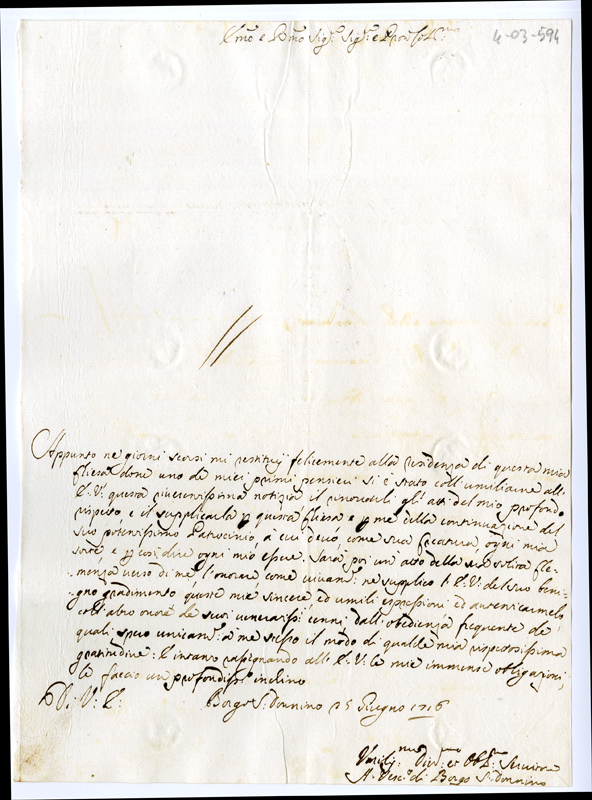 Em̃o e Rm̃o Sig:r Sig:r e Pron Col:mo
4-03-594
Appunto ne giorni scorsi mi restituij felicemente alla residenza di questa mia
Chiesa dove uno de miei primi pensieri si è stato coll'umiliarne all'
E: V: questa riverentissima notizia il rinovarli gli atti del mio profondo
rispetto e il supplicarla p questa Chiesa e p me della continuazione del
suo potentissimo Patrocinio, a cui devo come sua creatura ogni mia
sorte, e p così dire ogni mio essere. Sarà poi un atto della sua solita cle-
menza verso di me, l'onorare, come vivam:te ne supplico l'E: V: del suo beni-
gno gradimento queste mie sincere, ed umili espressioni ed autenticarmelo
coll'altro onore de suoi veneratissi: cenni dall'obedienza frequente de
quali spero unicam:te a me stesso il modo di qualche mia rispettosissima
gratitudine: E intanto rassegnando all' E: V: le mie immense obligazioni,
le faccio un profondiss:o inchino
D: V: E: Borgo S: Donnino 25 Giugno 1716
Umilis:mo Div:mo et Obl:mo Servitore
A. Vesc:o di Borgo S: Donnino